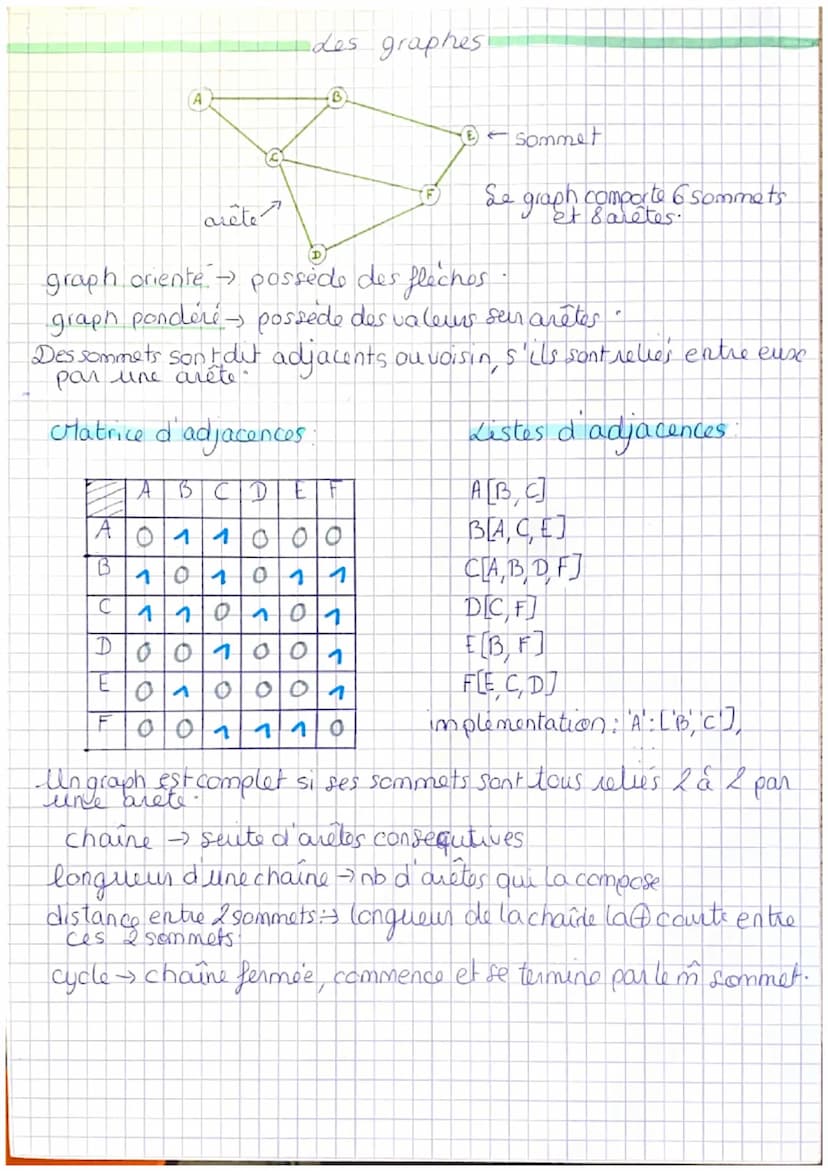 Les graphes
A B
E ← sommet
C
F
Le graph comporte 6 sommets
et 8 arêtes.
arête
D
graph orienté → possède des flèches.
graph pondéré → possède des valeurs sur arêtes.
Des sommets sont dit adjacents ou voisin, s'ils sont reliés entre eux
par une arête.
Matrice d'adjacences:
A B C D E F
A 0 1 1 0 0 0
B 1 0 1 0 1 1
C 1 1 0 1 0 1
D 0 0 1 0 0 1
E 0 1 0 0 0 1
F 0 0 1 1 1 0
Listes d'adjacences:
A[B, C]
B[A, C, E]
C[A, B, D, F]
D[C, F]
E[B, F]
F[E, C, D]
implémentation: 'A': ['B', 'C'],
Un graph est complet si ses sommets sont tous reliés 2 à 2 par
une arête.
chaîne → suite d'arêtes consequtives
longueur d'une chaîne → nb d'arêtes qui la compose
distance entre 2 sommets: → longueur de la chaîne la ⊕ courte entre
ces 2 sommets.
cycle → chaîne fermée, commence et se termine par le m̂ sommet.